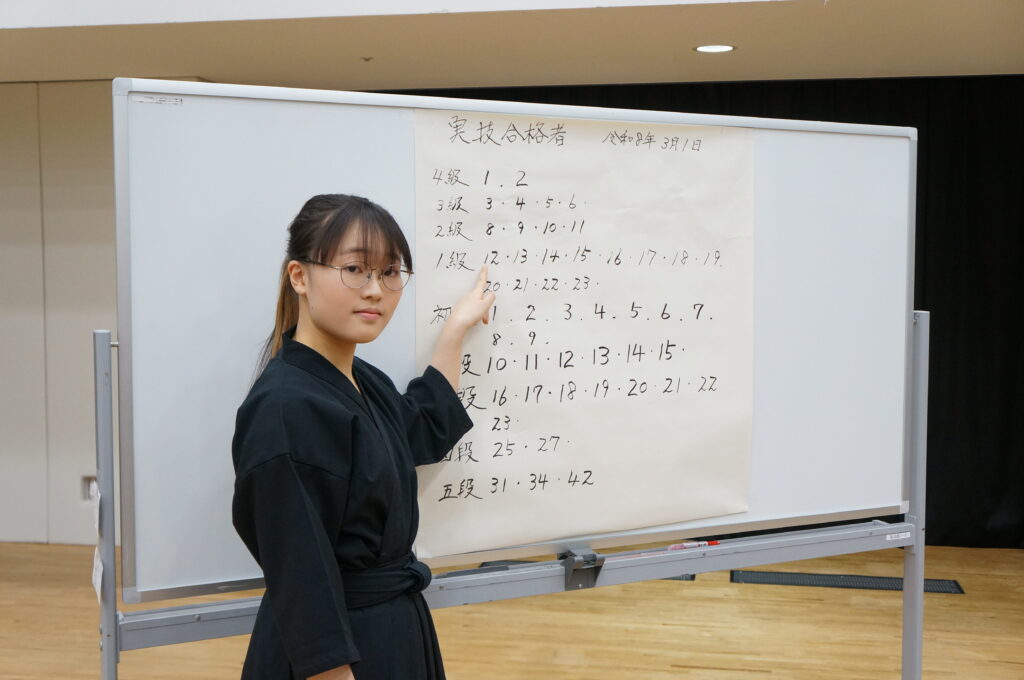 実技合格者 令和8年3月1日
4級 1．2
3級 3・4・5・6・
2級 8・9・10・11
1級 12・13・14・15・16・17・18・19．
20・21・22・23・
初 1．2．3．4．5．6．7．
8．9．
段 10・11・12・13・14・15・
段 16・17・18・19・20・21・22
23・
四段 25・27・
五段 31・34・42